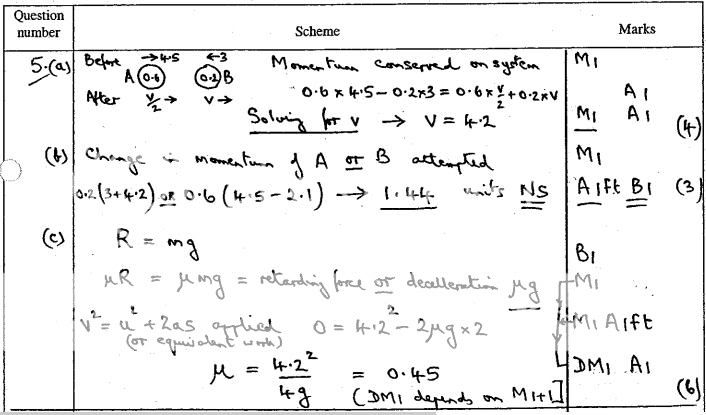 Question number Scheme Marks
5.(a) Before →4.5 ←3 Momentum conserved on system M1
A (0.6) (0.2) B 0.6 × 4.5 − 0.2×3 = 0.6×v/2 + 0.2×v A1
After v/2 → v→
Solving for v → v = 4.2 M1 A1 (4)
(b) Change in momentum of A or B attempted M1
0.2(3+4.2) or 0.6(4.5−2.1) → 1.44 units NS A1ft B1 (3)
(c) R = mg B1
μR = μmg = retarding force or decelleration μg M1
v² = u² + 2as applied 0 = 4.2² − 2μg×2 M1 A1ft
(or equivalent work)
μ = 4.2²/4g = 0.45 DM1 A1
(DM1 depends on M1+1] (6)